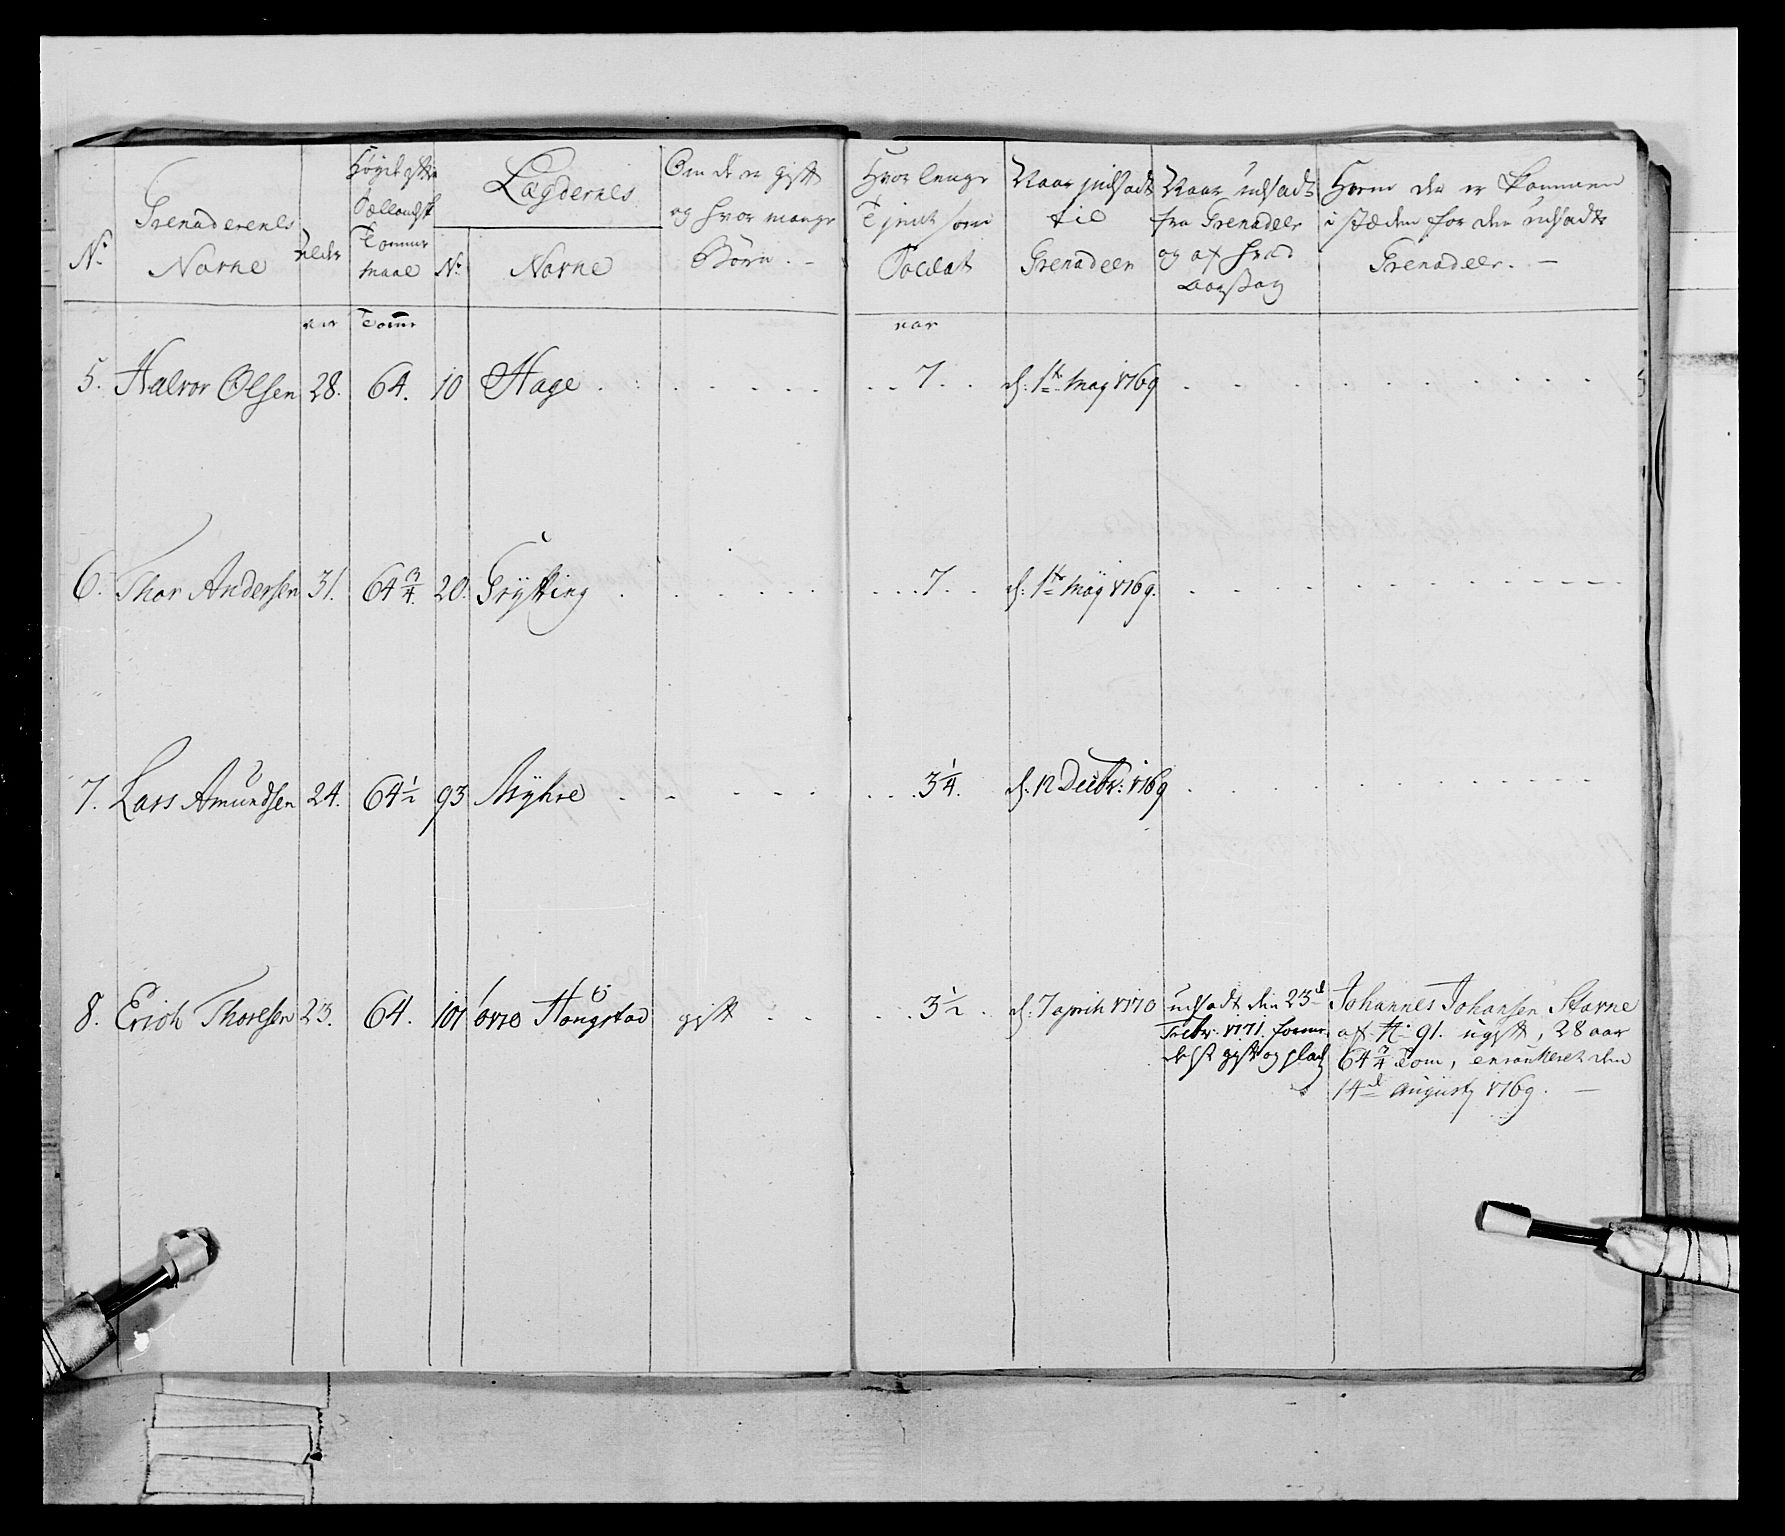 No Grenaderenes Navne Alder Høyd efter Sællandsk Tomme Maal Lægdernes No Navne Om de er gift og hvor mange Børn. Hvor lenge Tjent som Soldat Naar indsadt til Grenadeer Naar Udsadt fra Grenadeer og af hvad Aarsag Hvem der er kommen i stæden for den udsadte Grenadeer.
aar Tomr aar
5. Halvor Olsen 28. 64. 10 Hage 7. d. 1te May 1769
6. Thor Andersen 31. 64 3/4. 20. Grytting 7. d. 1te May 1769.
7. Lars Amundsen 24. 64 1/2 93 Myhre 3 1/4. d. 12 Decbr: 1769
8. Erich Thoresen 23. 64. 101 Hougstad gift 3 1/2. d. 7 april 1770 udsadt den 23d Johannes Johansen Starne
1771. af No 91. ugift, 28 aar
gift og 64 3/4 Tom, enroulleret den
14d Augusty 1769.